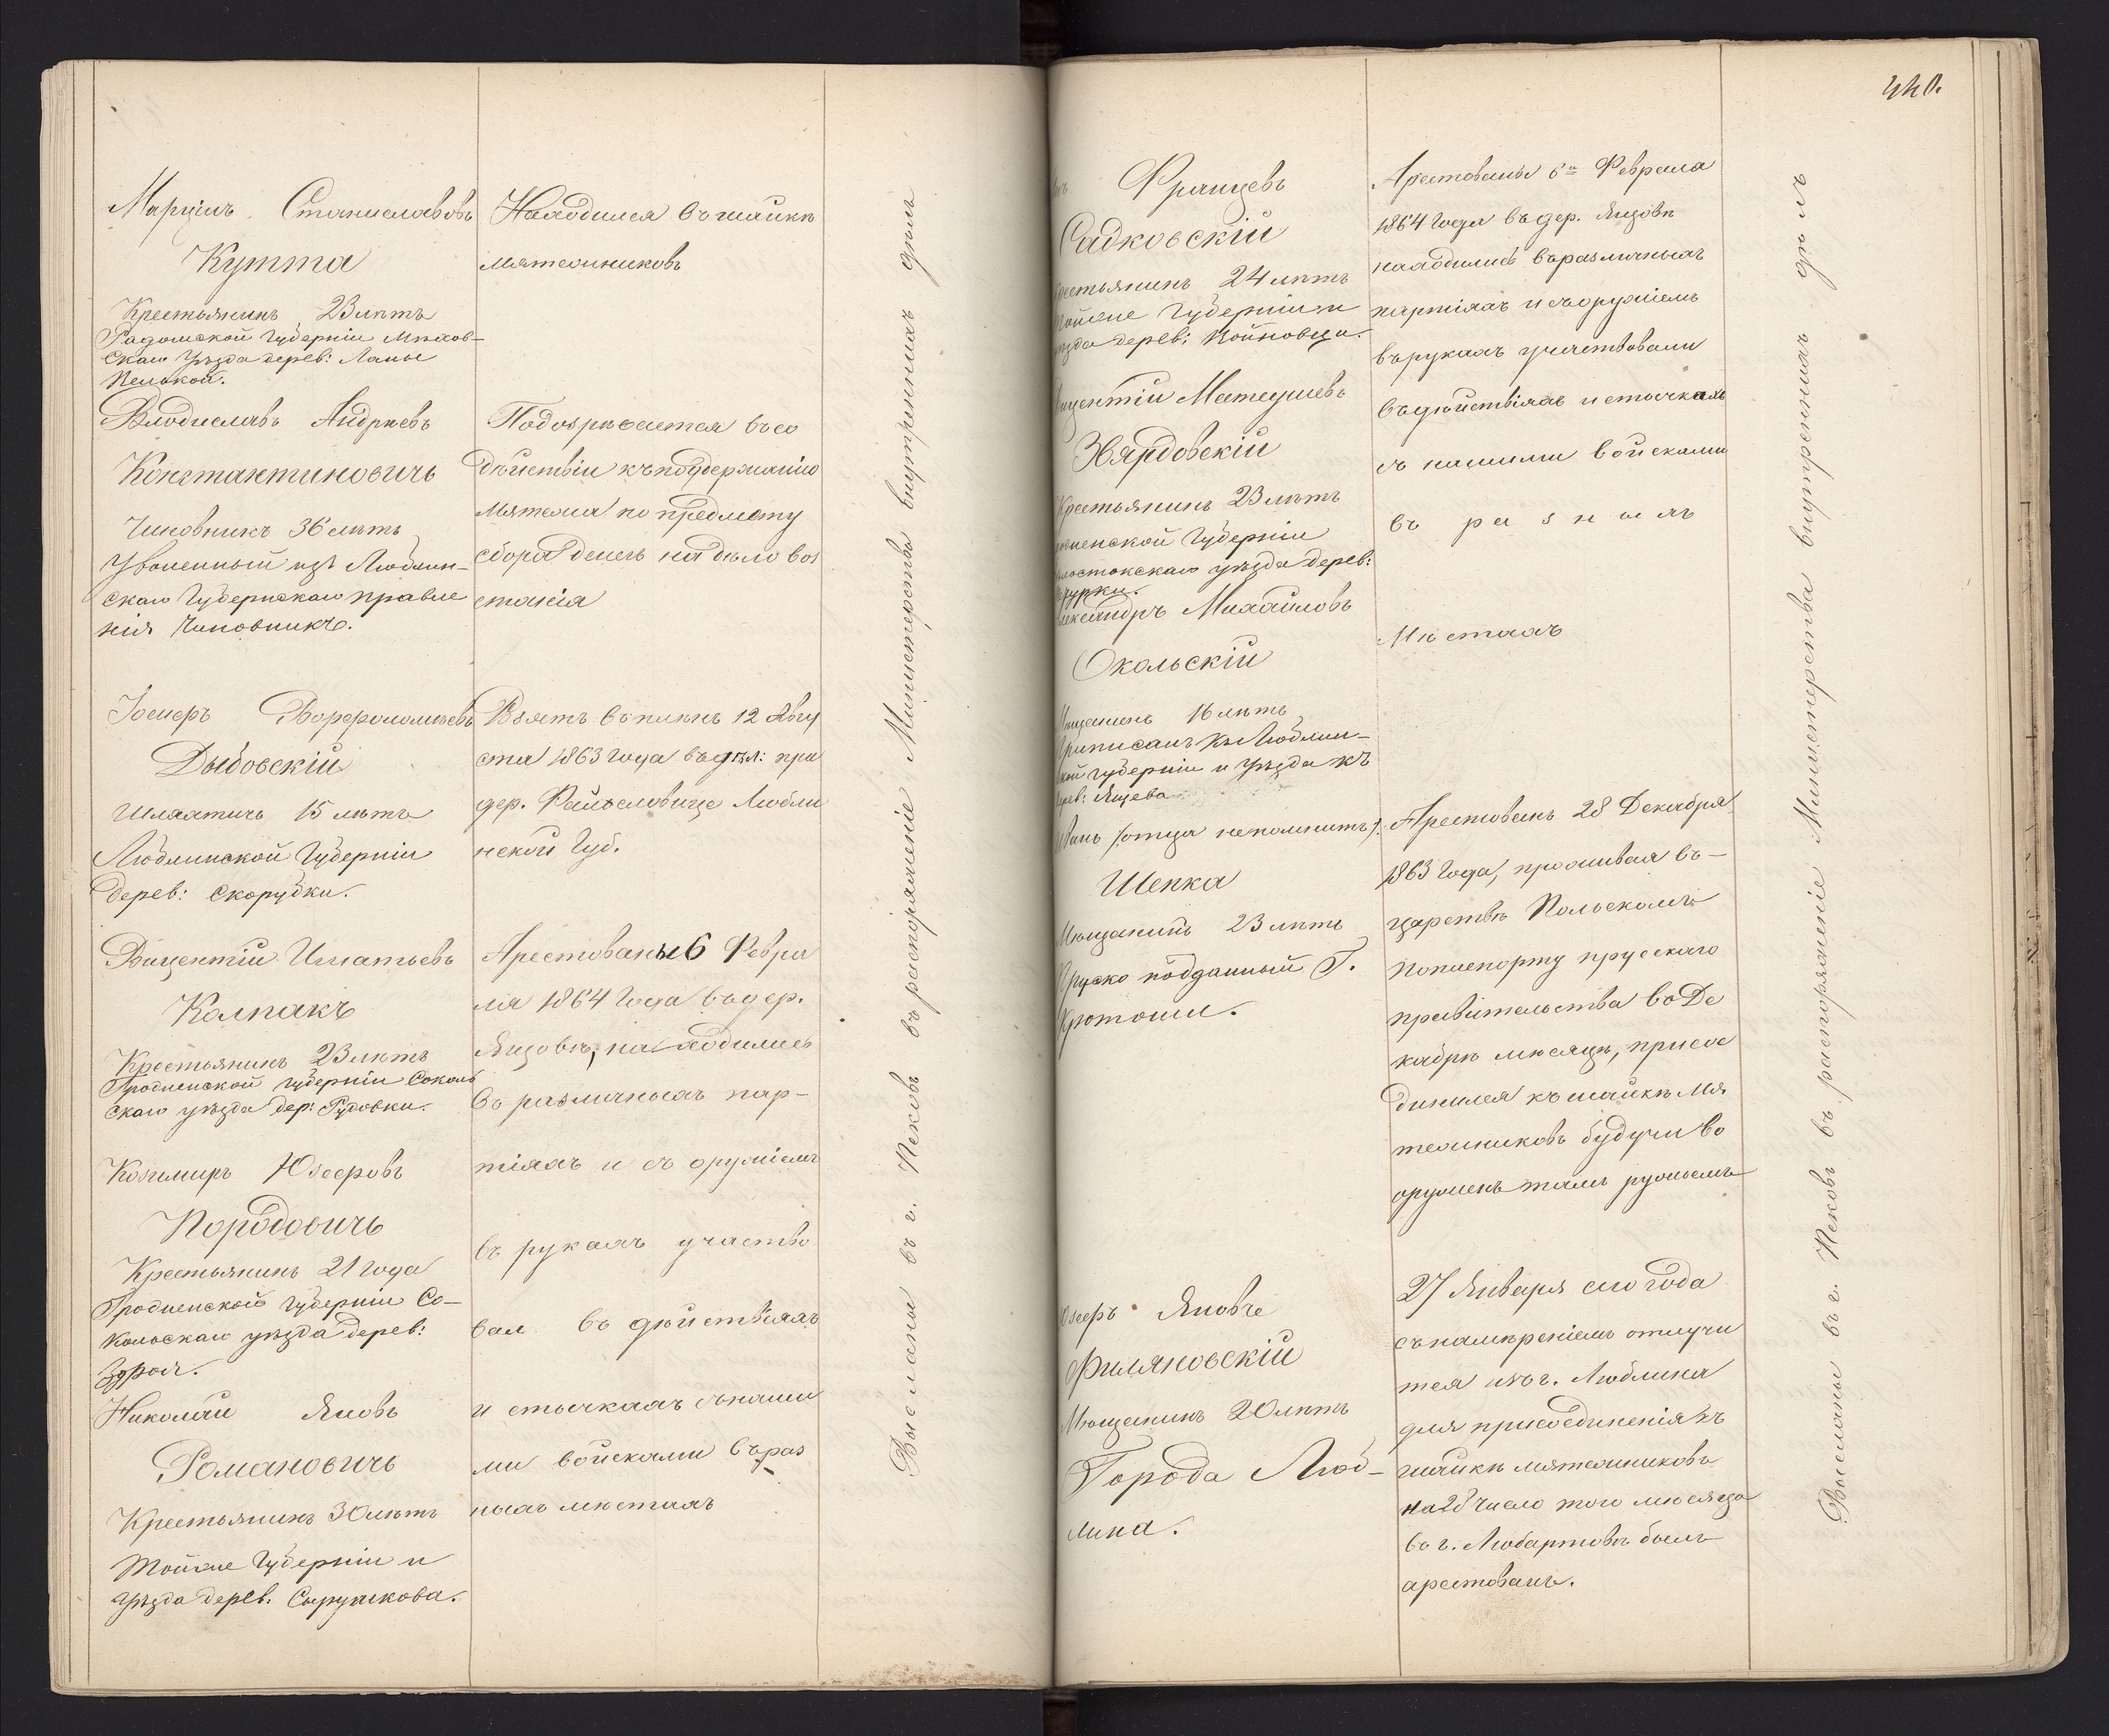 Марцінъ Станиславовъ
Кутта
Крестьянинъ 23 лѣтъ
Радомской Губерніи Мѣхов-
скаго Уѣзда дерев: Лапы
Велькой.
Находился въ шайкѣ
мятежниковъ
Влодиславъ Андреевъ
Константиновичъ
Чиновникъ 36 лѣтъ
Уволенный изъ Люблин-
скаго Губернскаго правле
нія чиновникъ.
Подозрѣвается въ со
дѣйствіи къ поддержанію
мятежа по предмету
сбора денегъ на дѣло воз
станія
Іосифъ Ворфоломѣевъ
Дыбовскій
Шляхтичъ 15 лѣтъ
Люблинской Губерніи
дерев: Скорубки.
Взятъ въ плѣнъ 12 Авгу
ста 1863 года въ дѣл: при
дер. Файсловице Любли
нской Губ.
Вицентій Игнатьевъ
Колпакъ
Крестьянинъ 23 лѣтъ
Гродненской губерніи Соколь
скаго уѣзда дер: Рудовки.
Козимиръ Юзефовъ
Породовичъ
Крестьянинъ 21 года
Гродненской губерніи Со-
кольскаго уѣзда дерев:
Здроя.
Николай Яновъ
Романовичъ
Крестьянинъ 30 лѣтъ
Тойже Губерніи и
Уѣзда дерев. Сырушкова.
Арестованы 6 Февра
ля 1864 года въ дер.
Яцовѣ, находились
въ различныхъ пар-
тіяхъ и съ оружіемъ
въ рукахъ участво
вал въ дѣйствіяхъ
и стычкахъ съ наши
ми войсками въ раз
ныхъ мѣстахъ
Высланы въ г. Псковъ въ распоряженіе Министерства внутреннихъ дѣлъ
440.
Францевъ
Садковскій
Крестьянинъ 24 лѣтъ
Тойже Губерніи и
уѣзда дерев: Войновца.
Вицентій Матеушевъ
Звярдовскій
Крестьянинъ 23 лѣтъ
Гродненской Губерніи
Бѣлостокскаго уѣзда дерев:
Александръ Михайловъ
Окольскій
Мѣщанинъ 16 лѣтъ
Приписанъ къ Люблин-
ской губерніи и Уѣзда къ
дерев: Яцева
Арестованы 6го Февраля
1864 года въ дер. Яцовѣ
находились въ различныхъ
партіяхъ и съ оружіемъ
въ рукахъ участвовали
въ дѣйствіяхъ и стычкахъ
съ нашими войсками
въ разныхъ
мѣстахъ
Иванъ /:отца не помнитъ:/
Шепка
Мѣщанинъ 23 лѣтъ
Пруско подданный Г.
Кротоши.
Арестованъ 28 Декабря
1863 года, проживая въ-
царствѣ Польскомъ
по паспорту прусскаго
правительства въ Де
кабрѣ мѣсяцѣ, присое
динился къ шайкѣ мя
тежниковъ будучи во
оруженъ тамъ ружьемъ
Юзефъ Яновъ
Филяновскій
Мѣщанинъ 20 лѣтъ
Города Люб-
лина.
27 Января сего года
съ намѣреніемъ отлучи
тся изъ г. Люблина
для присоединенія къ
шайкѣ мятежниковъ
на 28 число того мѣсяца
въ г. Любартовѣ былъ
арестованъ.
Высланы въ г. Псковъ въ распоряженіе Министерства внутреннихъ дѣлъ